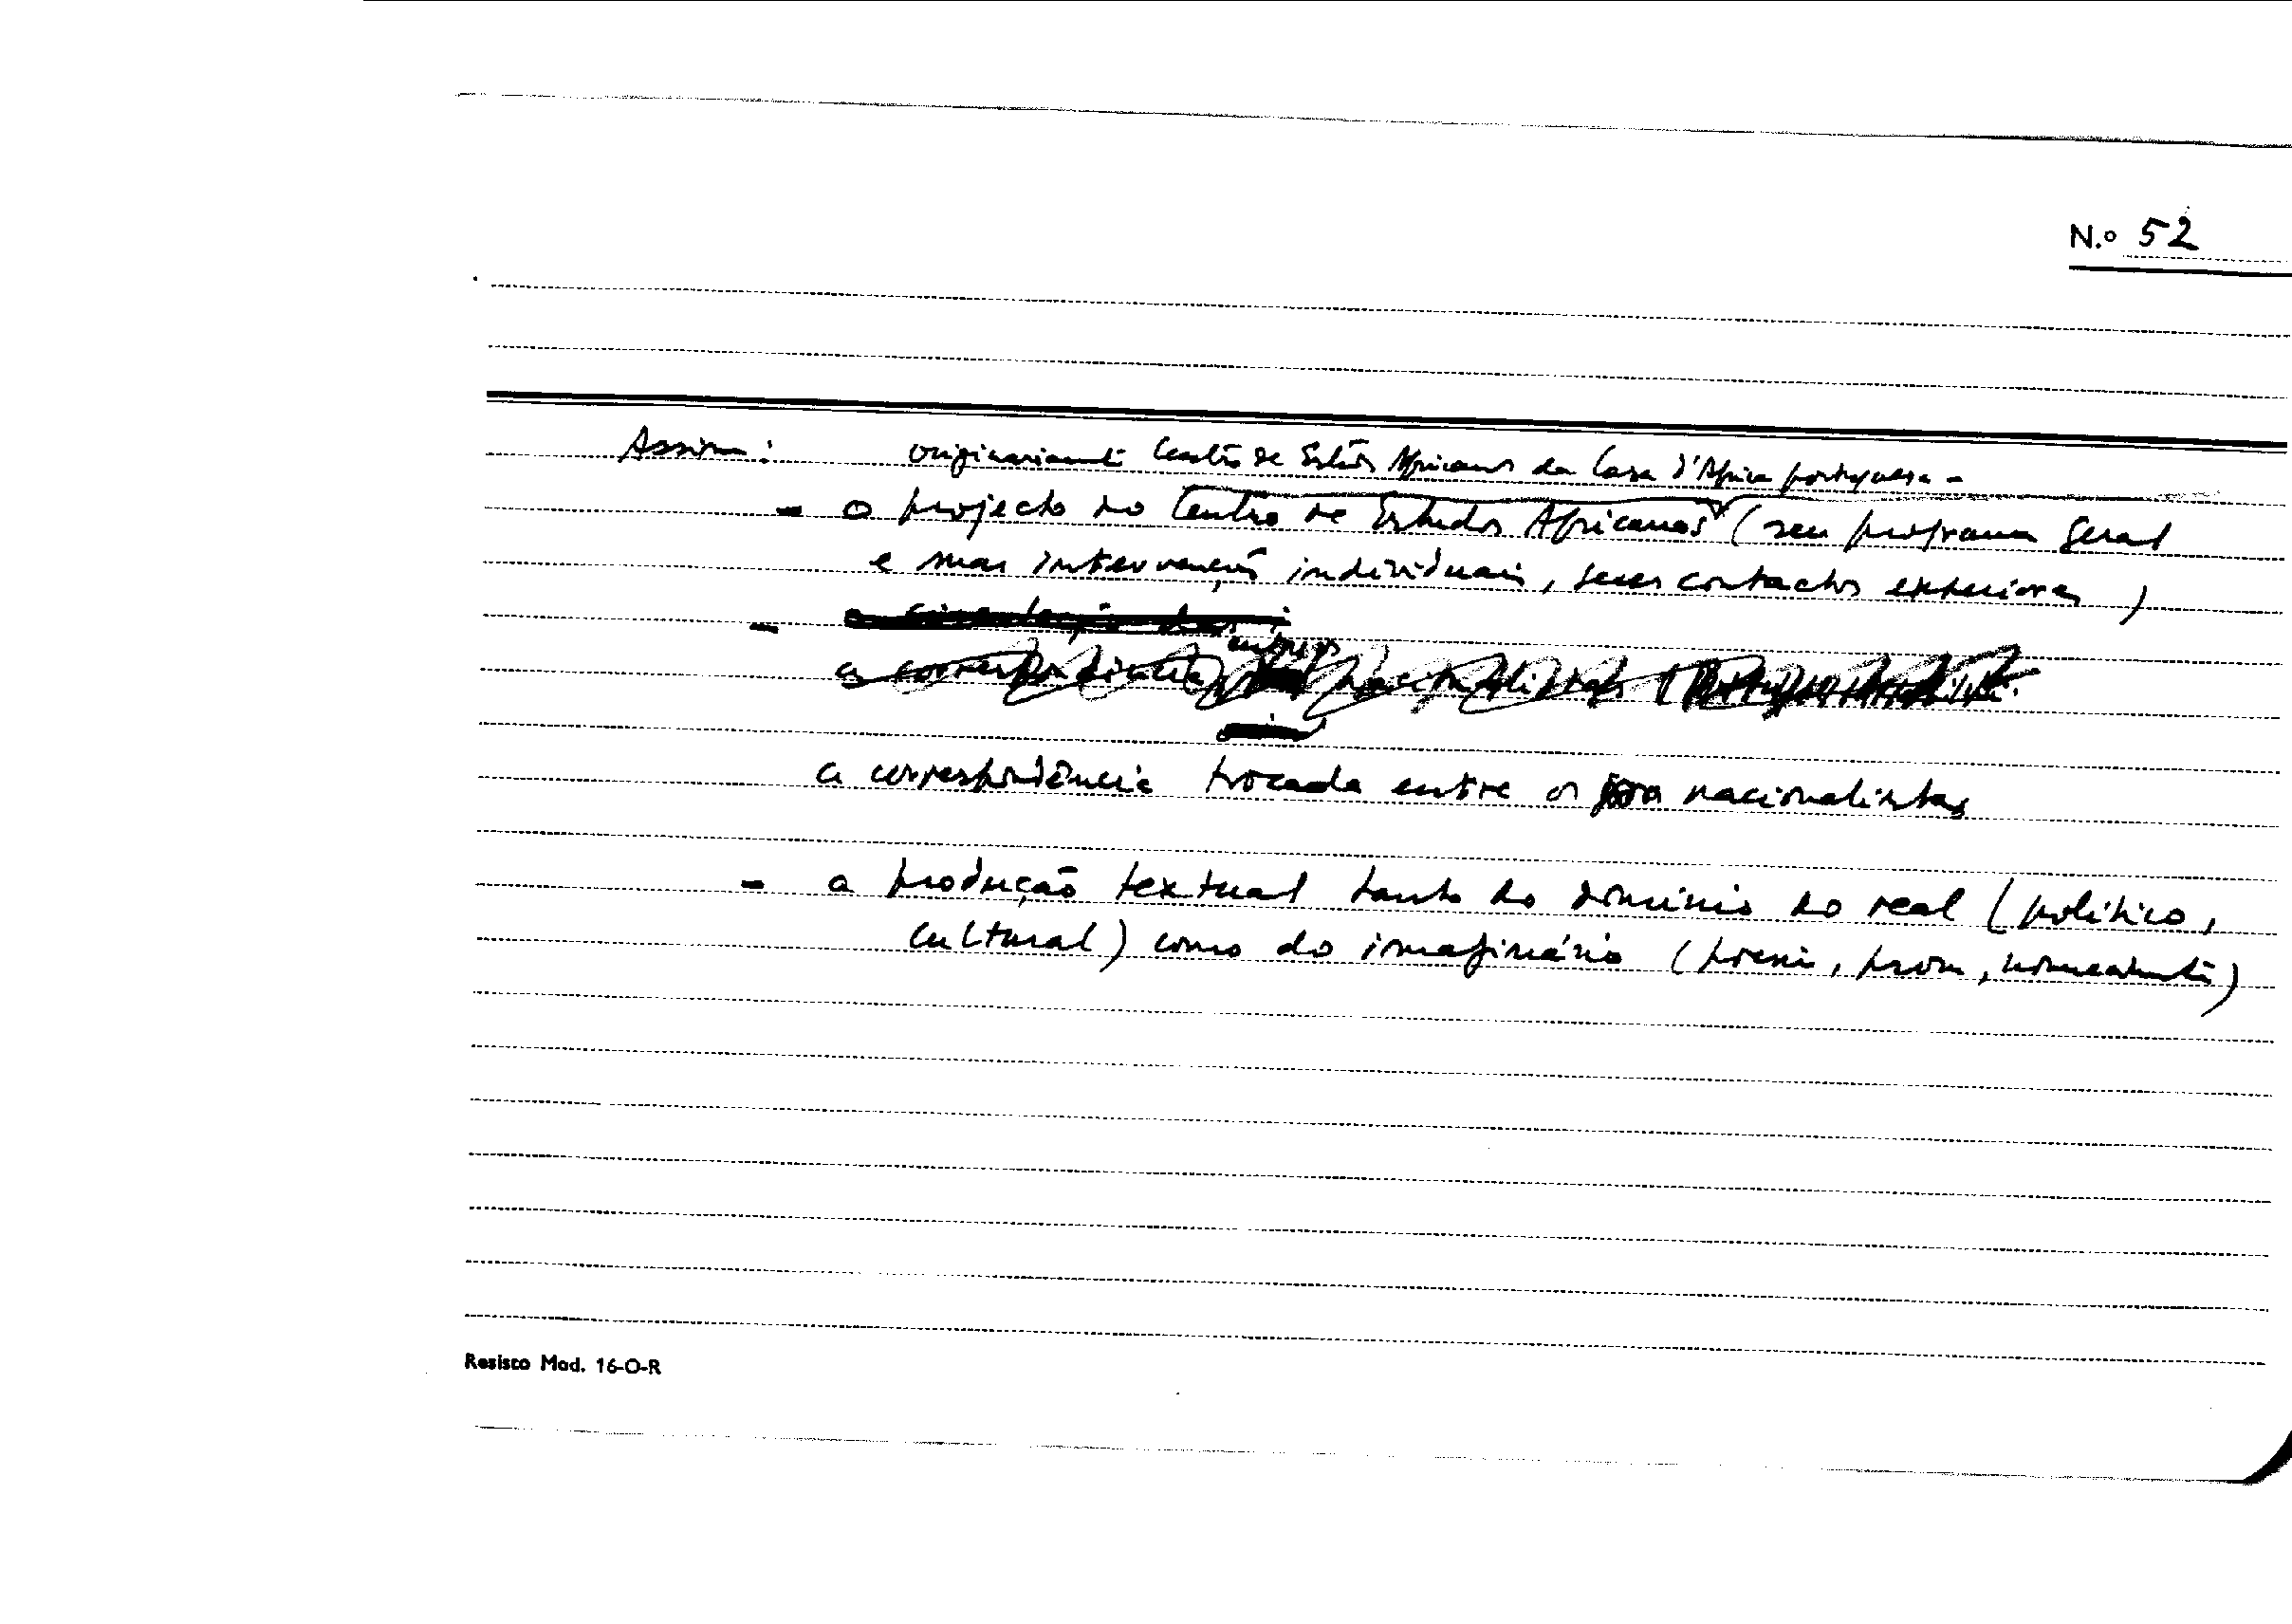 N.º 52
Assim:
originariamente Centro de Estudos Africanos da Casa d'África portuguesa -
- o projecto do Centro de Estudos Africanos (seu programa geral
e suas intervenções individuais, seus contactos exteriores)
- a circulação das
a correspondência nacionalistas
a correspondência trocada entre os nacionalistas
- a produção textual tanto do domínio do real (político,
cultural) como do imaginário (poesia, prosa, nomeadamente)
Resisto Mod. 16-O-R